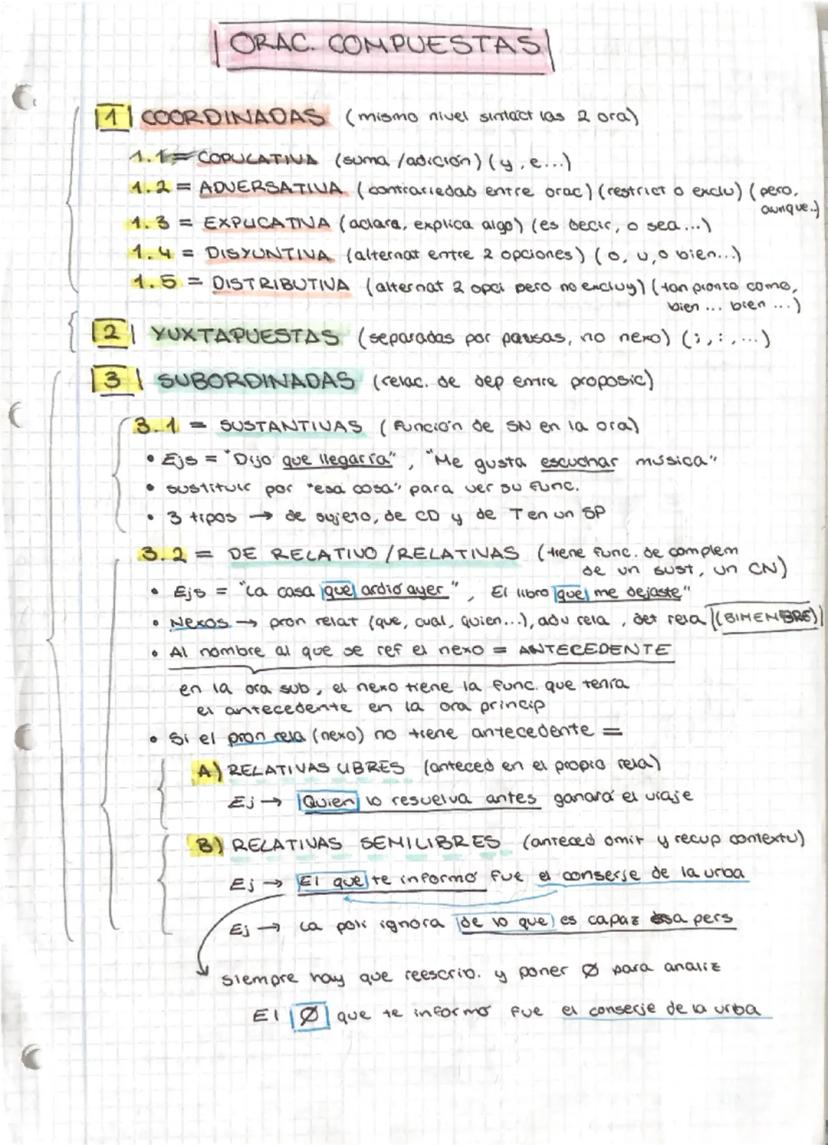 ORAC. COMPUESTAS
1 COORDINADAS (mismo nivel sintact las 2 ora)
1.1 = COPULATIVA (suma/adición) (y, e...)
1.2 = ADVERSATIVA (contrariedad entre orac) (restrict o exclu) (pero,
aunque..)
1.3 = EXPLICATIVA (aclara, explica algo) (es decir, o sea...)
1.4 = DISYUNTIVA (alternat entre 2 opciones) (o, u, o bien...)
1.5 = DISTRIBUTIVA (alternat 2 opci pero no excluy) (tan pronto como,
bien ... bien ...)
2 YUXTAPUESTAS (separadas por pausas, no nexo) (; , : , ...)
3 SUBORDINADAS (relac. de dep entre proposic)
3.1 = SUSTANTIVAS (Función de SN en la ora)
• Ejs = "Dijo que llegaría", "Me gusta escuchar música"
• sustituir por "esa cosa" para ver su func.
• 3 tipos → de sujeto, de CD y de T en un SP
3.2 = DE RELATIVO/RELATIVAS (tiene func. de complem
de un sust, un CN)
• Ejs = "La casa que ardió ayer", El libro que me dejaste"
• Nexos → pron relat (que, cual, quien...), adv rela, det rela (BIMEMBRE)
• Al nombre al que se ref el nexo = ANTECEDENTE
en la ora sub, el nexo tiene la func. que tenía
el antecedente en la ora princip
• Si el pron rela (nexo) no tiene antecedente =
A) RELATIVAS LIBRES (anteced en el propio rela)
Ej → Quien lo resuelva antes ganará el viaje
B) RELATIVAS SEMILIBRES (anteced omit y recup contextu)
Ej → El que te informó fue el conserje de la urba
Ej → La poli ignora de lo que es capaz esa pers
siempre hay que reescrib. y poner Ø para analiz
El Ø que te informó fue el conserje de la urba